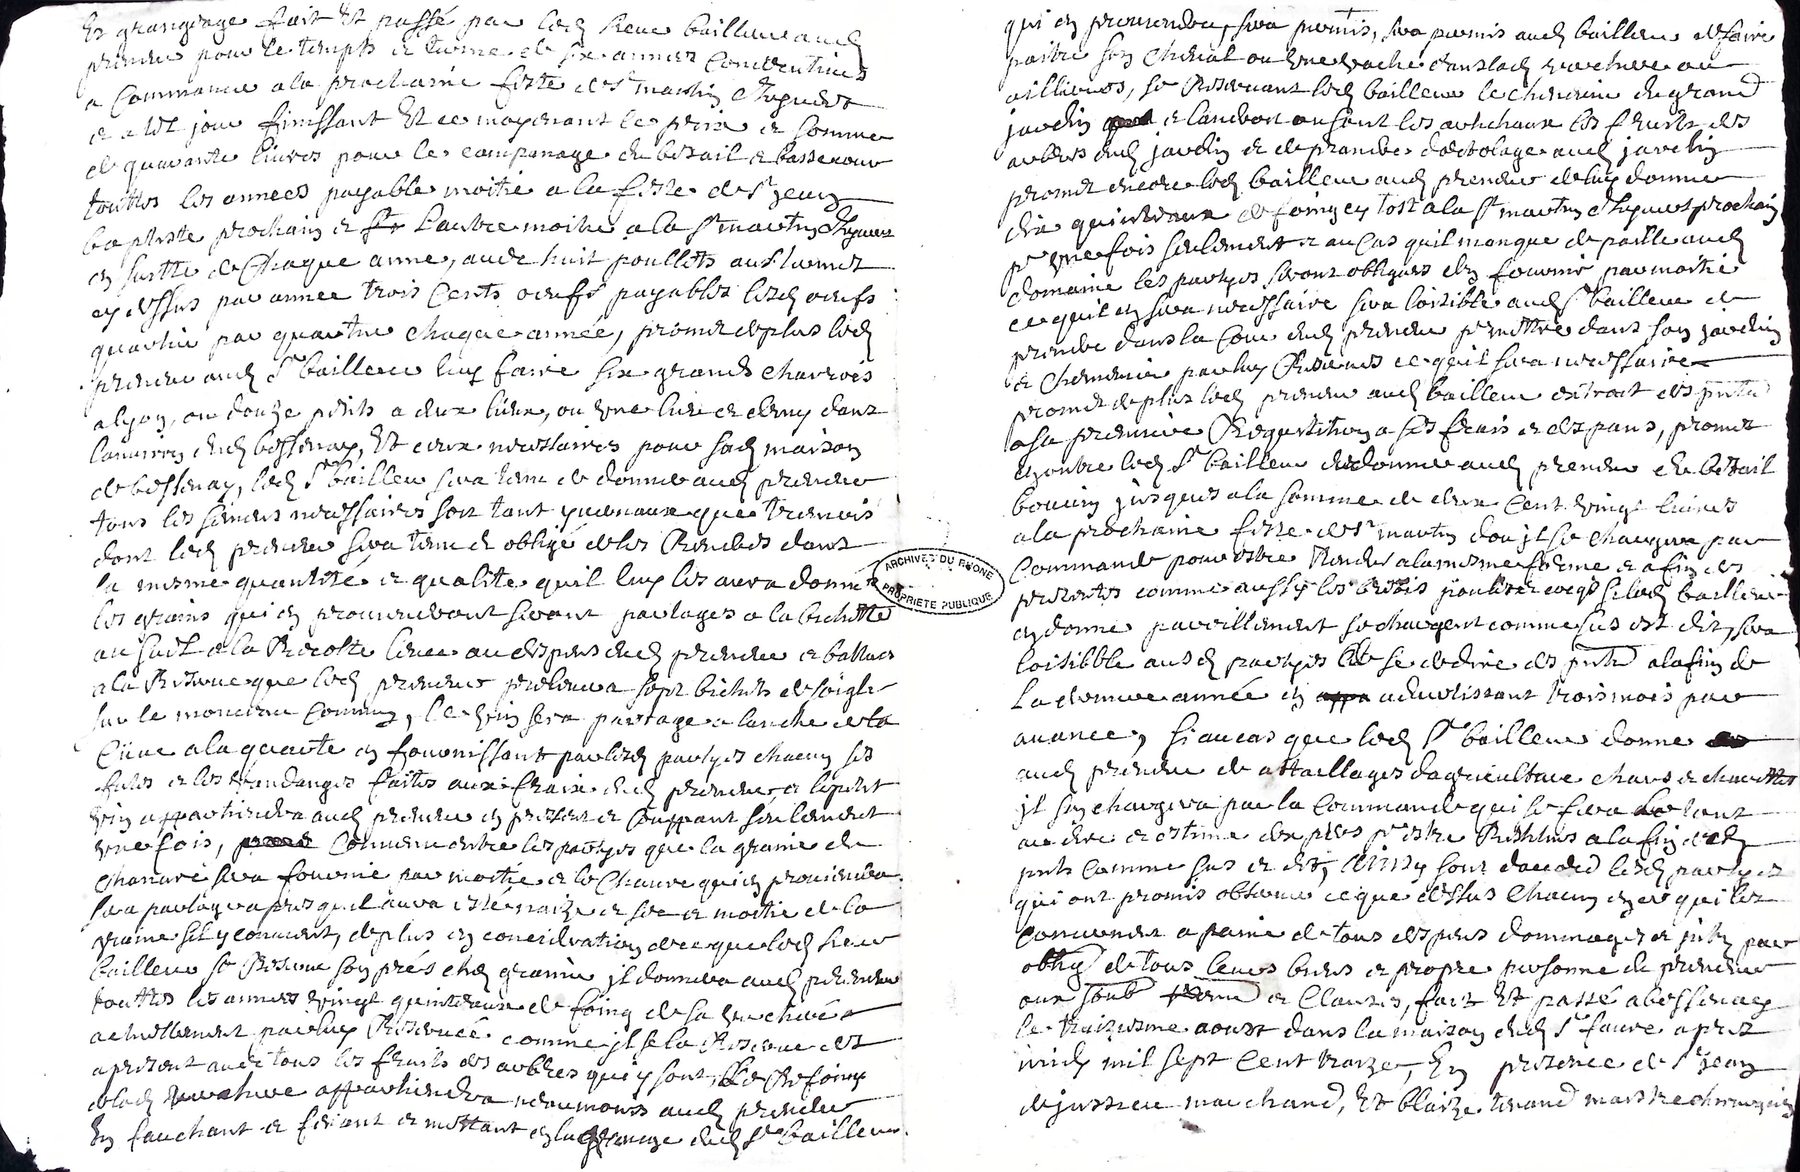 Et grangeage fait Et passé par led sieur bailleur aud
preneur pour le temps et terme de six années Consecutives
a Commancer a la prochaine feste de st martin d'hyvert
et a tel jour finissant Et ce moyenant le prix et somme
de quarante livres pour le companage du betail et bassecour
touttes les années payable moitié a la feste de st jean
baptiste prochain et Lautre moitié a la st martin d'hyvert
en suitte de Chaque anné, avec huit poullets
cy dessus par année trois Cents oeufs payables lesd oeufs
quartier par quartier chaque année, promet de plus led
preneur aud sr bailleur luy faire six grands charrois
a lyon, ou douze petits a deux lieux, ou une lieu et demy dans
lanviron dud bessenay, Et ceux necessaires pour sad maison
de bessenay, led sr bailleur sera tenu de donner aud preneur
tous les semens necessaires soit tant yvernaux que tremois
dont led preneur sera tenu et obligé de les Rendre dans
la mesme quantité et qualité quil luy les aura donné
les grains qui en proviendront seront partagés a la bichette
au suel et la Récolte levée aux despens dud preneur et battues
a la Réserve que led preneur prelevera sept bichets de soigle
sur le monceau Commun, le vin sera partagé a lanche de la
Cuve a la quarte en fournissant par lesd partyes chacun ses
futes et les vendanges faites aux fraix dud preneur et le petit
vin appartiendra aud preneur en pressant et Couppant seulement
une fois, Convenu entre les partyes que la graine de
chanvre sera fournie par moitié et le Chanvre qui en proviendra
sera partagé apres quil aura esté naizé et sec et moitié de la
graine sil y convient, de plus en consideration de ce que led sieur
bailleur se Réserve son prés de la grange il donnera aud preneur
touttes les années vingt quinteaux de foing de sa verchere
actuellement par luy Réservée comme il se la Réserve des
a present avec tous les fruits des arbres qui y sont, Le Refoing
de lad verchere appartiendra neanmoins aud preneur
En fauchant et fenant et mettant en la grange dud sr bailleur
qui en proviendra, sera permis aud bailleur de faire
paitre son Cheval ou une vache dans lad verchere ou
aillieurs, se Réservant led bailleur le chenevier du grand
jardin et landroit ou sont les artichaux les fruits des
arbres dud jardin et de prandre dortolage aud jardin
promet encore led bailleur aud preneur de luy donner
dix quinteaux de foing cy tost a la st martin d'hyvert prochain
pr une fois seulement et au Cas quil manque de paille aud
domaine les partyes seront obligées den fournir par moitié
ce quil en sera necessaire sera loisible aud sr bailleur de
prendre dans la Cour dud preneur pr mettre dans son jardin
et chenevier par luy Réservés ce quil sera necessaire
promet de plus led preneur aud bailleur extrait des pntes
a sa premiere Requisition a ses frais et despans, promet
en outre led sr bailleur de donner aud preneur du betail
bouvin jusques a la somme de deux Cent vingt livres
a la prochaine feste de st martin dou jl se chargera par
Commande pour estre Rendu a la mesme forme et a fin des
presentes comme aussy les brebis si led bailleur
en donne pareillement se chargent comme sus est dit, sera
loisibble ausd partyes de se dedire des pntes a la fin de
La deuxieme année en advertissant trois mois par
avance, si au cas que led sr bailleur donne
aud preneur de attaillages dagriculture chars et charettes
jl sen chargera par la Commande qui se fera tout
au dire et estime dexperts pr estre Restitués a la fin desd
pntes Comme sus et dit, Ainsy sont daccord lesd partyes
qui ont promis observer ce que dessus Chacun en ce qui les
Concernent a paine de tous despens dommages et jnts par
oblig de tous leurs biens et propre personne de preneur
aux soub et Clauzes, fait Et passé a bessenay
le traizieme aoust dans la maison dud sr faure apres
midy mil sept Cent traize, En presence de sr jean
de jussieu marchand, Et blaize terand maistre chirurgien
ARCHIVES DU RHONE
PROPRIETE PUBLIQUE